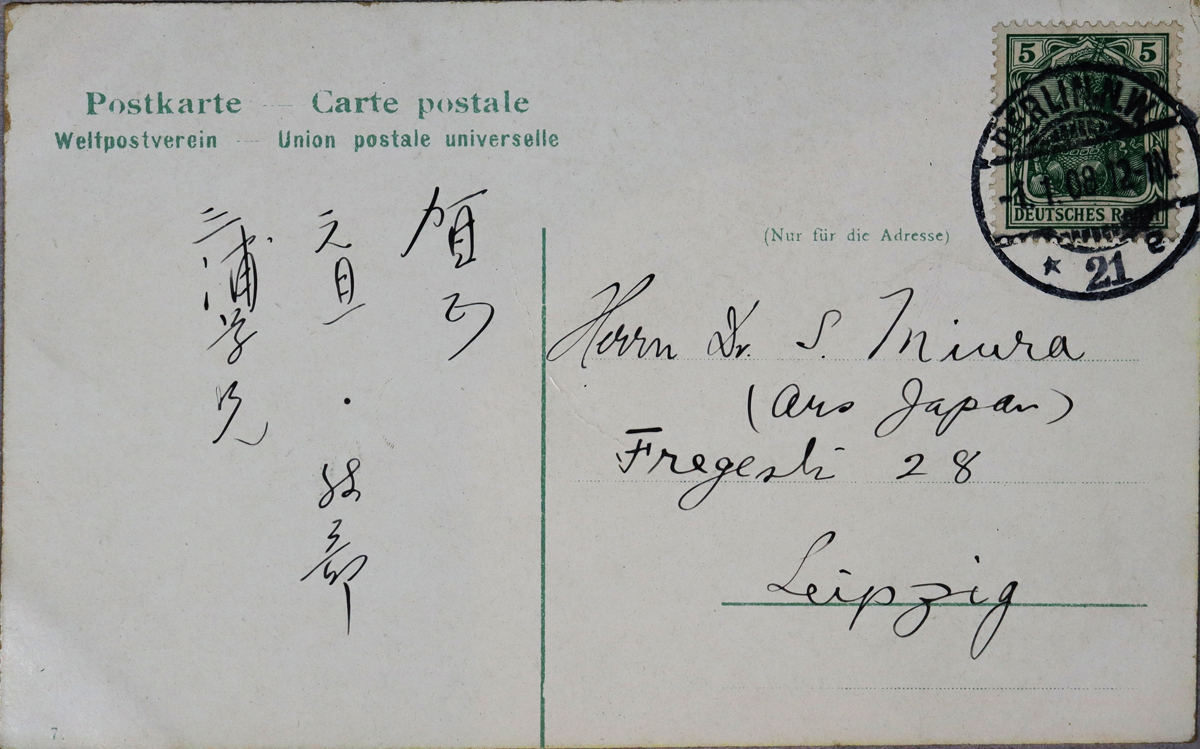 Postkarte — Carte postale
Weltpostverein — Union postale universelle
賀正
元旦 . 服部
三浦学兄
(Nur für die Adresse)
Herrn Dr. S. Miura
(Aus Japan)
Fregestr 28
Leipzig
5 5
DEUTSCHES REICH
BERLIN N.W.
1.1.09.12-1N.
* 21 e
7.